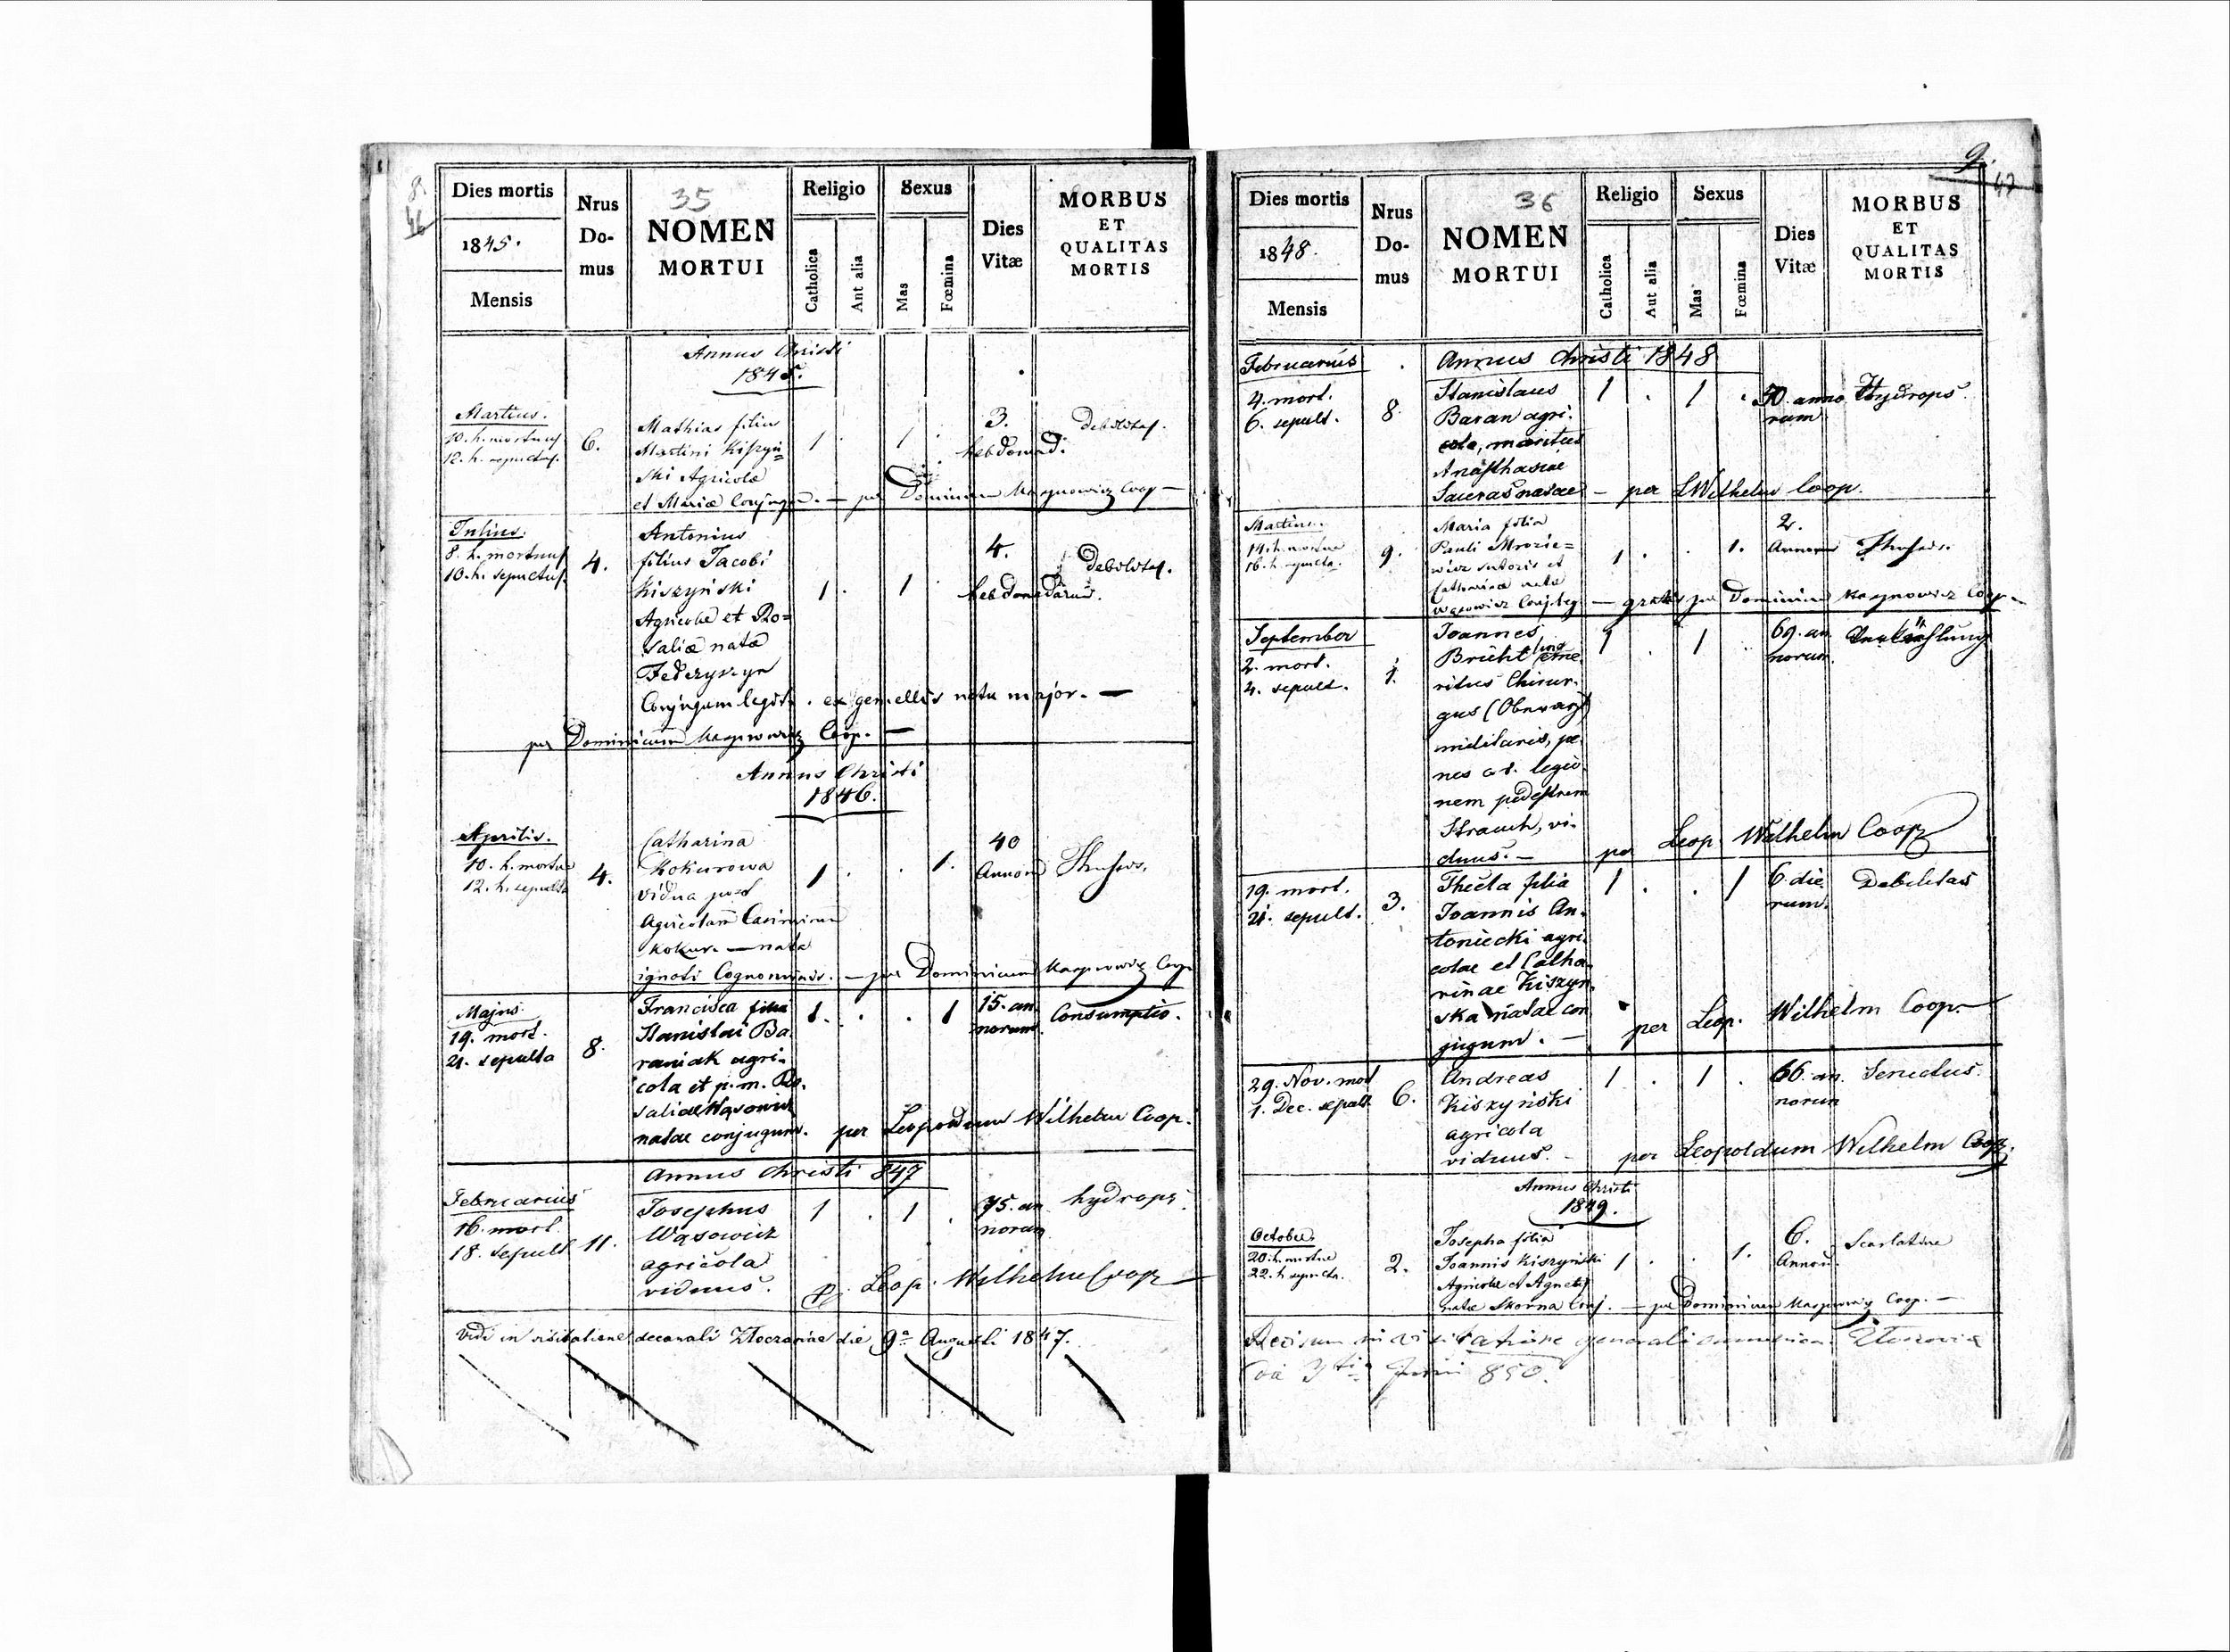 8.
46
35
Dies mortis
1845.
Mensis
Nrus
Do-
mus
NOMEN
MORTUI
Religio
Catholica
Ant alia
Sexus
Mas
Fœmina
Dies
Vitæ
MORBUS
ET
QUALITAS
MORTIS
Annus Christi
1845.
Martius.
10. h. mortuus
12. h. sepultus.
6.
Mathias filius
Martini Kiszyń=
ski Agricolæ
et Mariæ Conjugum. — per Dominicum Kasprowicz Coop —
1 . 1 .
3.
hebdomad:
debilitas.
Julius.
8. h. mortuus
10. h. sepultus.
4.
Antonius
filius Jacobi
Kiszyński
Agricolæ et Ro=
saliæ nata
Fedezyszyn
Conjugum legit. ex gemellis natu major. —
per Dominicum Kasprowicz Coop. —
1 . 1 .
4.
hebdomadarum.
debilitas.
Annus Christi
1846.
Aprilis.
10. h. mortua
12. h. sepulta
4.
Catharina
Kokurowa
vidua post
Agricolam Casimirum
Kokur — nata
ignoti Cognominis. — per Dominicum Kasprowicz Coop
1 . . 1.
40
Annor
Majus
19. mort.
21. sepulta
8.
Francisca filia
Stanislai Ba
raniak agri-
cola et p. m. Ro-
saliae Wąsowicz
natae conjugum. per Leopoldum Wilhelm Coop.
1. . . 1
15. an
norum.
Consumptio.
Annus Christi 847
Februarius
16. mort.
18. sepult
11.
Josephus
Wąsowicz
agricola
viduus.
1 . 1 .
75. an
norum
hydrops.
Leop. Wilhelm Coop
Vidi in visitatione decanali Złoczoviae die 9a Augusti 1847.
9.
47
36
Dies mortis
1848.
Mensis
Nrus
Do-
mus
NOMEN
MORTUI
Religio
Catholica
Aut alia
Sexus
Mas
Fœmina
Dies
Vitæ
MORBUS
ET
QUALITAS
MORTIS
Februarius
Annus Christi 1848
4. mort.
6. sepult.
8.
Stanislaus
Baran agri-
cola, maritus
Anasthasiae
natae — per L Wilhelm Coop.
1 . 1 .
50. anno
rum
Hydrops.
Martius.
14. h. mortua
16. h. sepulta.
9.
Maria filia
Pauli Mrozie=
wicz sutoris et
Catharinæ nata
Wąsowicz Conj. leg — gratis per Dominicum Kasprowicz Coop —
1 . . 1.
2.
Annor
September
2. mort.
4. sepult.
1.
Joannes
Brühl eme
ritus Chirur-
gus (Oberarzt)
militaris, pe
nes legio
nem pedestrem
Strauch, vi-
duus. —
per Leop Wilhelm Coop
1 . 1 .
69. an
norum.
19. mort.
21. sepult.
3.
Thecla filia
Joannis An-
toniecki agri-
colae et Catha-
rinae Kiszyn-
ska natae con
jugum. —
per Leop. Wilhelm Coop.
1 . . 1
6 die
rum.
Debilitas
29. Nov. mort
1. Dec. sepult
6.
Andreas
Kiszyński
agricola
viduus. -
per Leopoldum Wilhelm Coop.
1 . 1 .
66. an
norum
Senectus.
Annus Christi
1849.
October.
20. h. mortua
22. h sepulta.
2.
Josepha filia
Joannis Kiszyński
Agricolæ et Agnetis
natæ Skorna Conj. — per Dominicum Kasprowicz Coop. —
1 . . 1.
6.
Annor
Scarlatina
Revisum in visitatione generali Złoczoviæ
Junii 850.